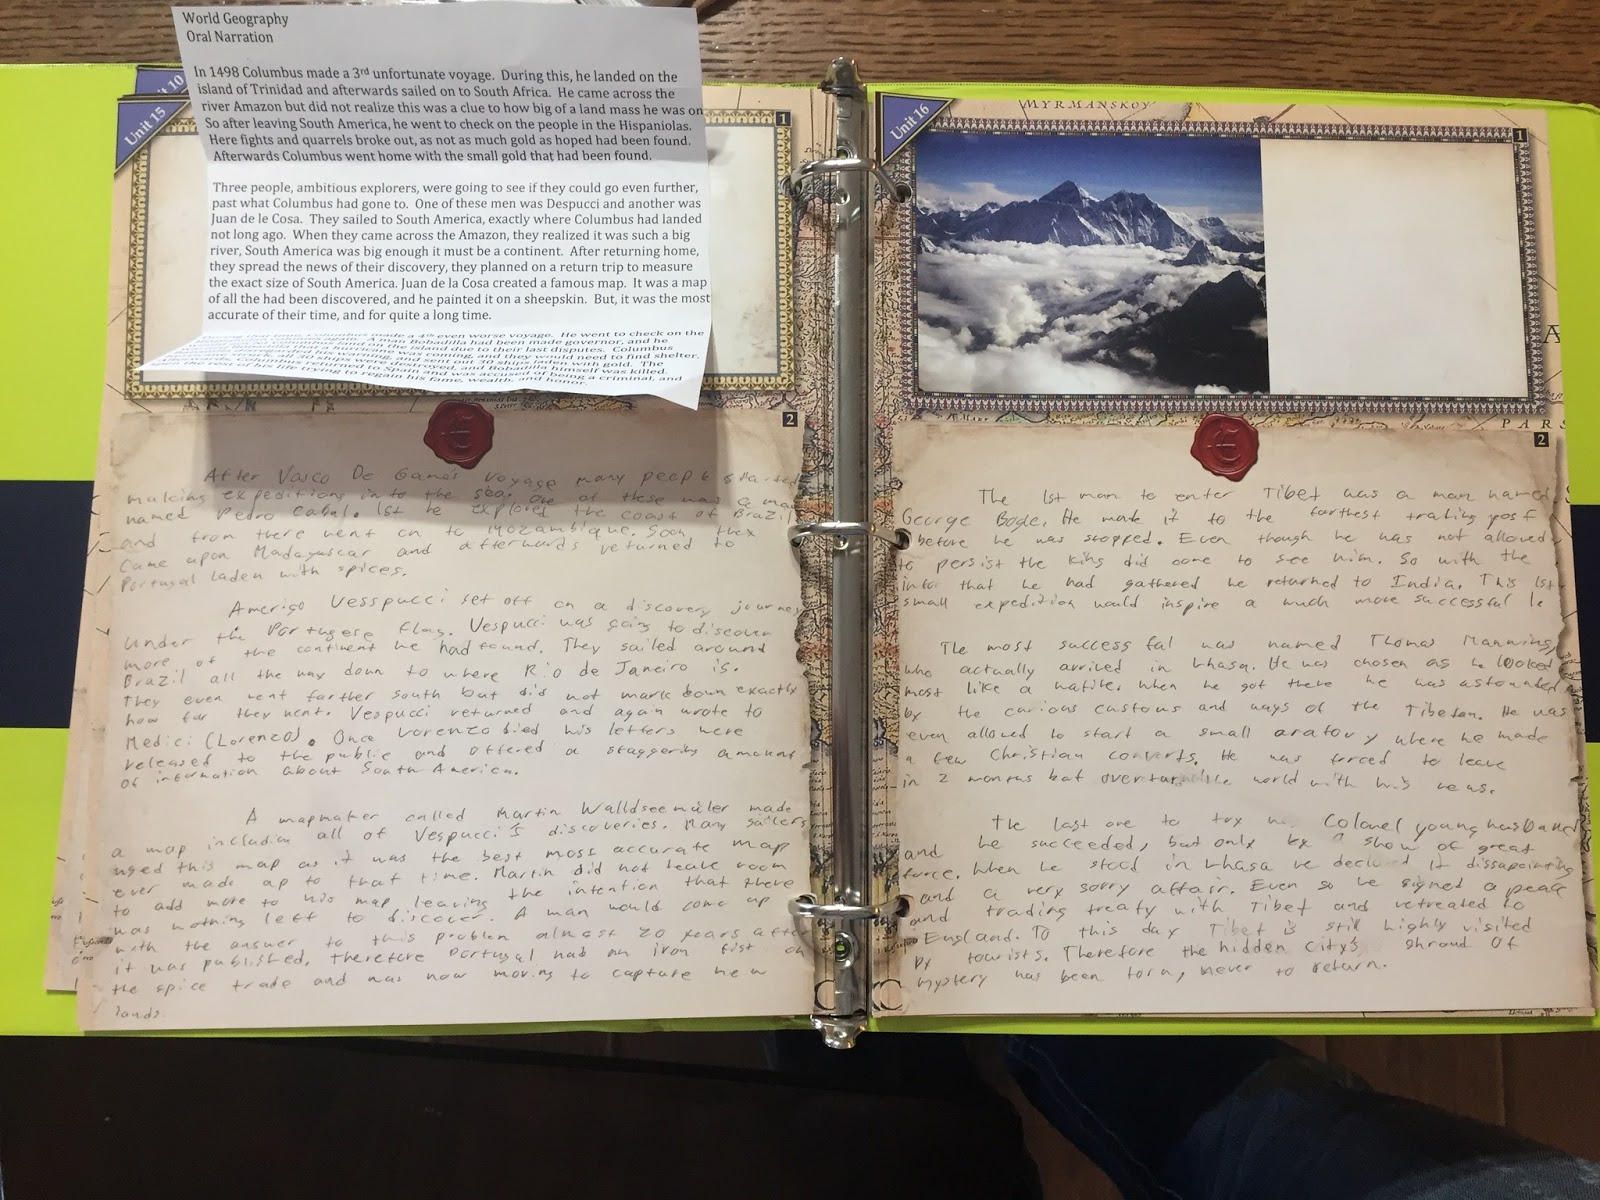 World Geography
Oral Narration
In 1498 Columbus made a 3rd unfortunate voyage. During this, he landed on the
island of Trinidad and afterwards sailed on to South Africa. He came across the
river Amazon but did not realize this was a clue to how big of a land mass he was on
So after leaving South America, he went to check on the people in the Hispaniolas.
Here fights and quarrels broke out, as not as much gold as hoped had been found.
Afterwards Columbus went home with the small gold that had been found.
Three people, ambitious explorers, were going to see if they could go even further,
past what Columbus had gone to. One of these men was Despucci and another was
Juan de le Cosa. They sailed to South America, exactly where Columbus had landed
not long ago. When they came across the Amazon, they realized it was such a big
river, South America was big enough it must be a continent. After returning home,
they spread the news of their discovery, they planned on a return trip to measure
the exact size of South America. Juan de la Cosa created a famous map. It was a map
of all the had been discovered, and he painted it on a sheepskin. But, it was the most
accurate of their time, and for quite a long time.
Columbus made a 4th even worse voyage. He went to check on the
A man Bobadilla had been made governor, and he
the island due to their last disputes. Columbus
his warning was coming, and they would need to find shelter.
30 ships laden with gold. The
destroyed, and Bobadilla himself was killed.
returned to Spain and was accused of being a criminal, and
rest of his life trying to regain his fame, wealth, and honor.
Unit 10
Unit 15
1
2
After Vasco De Gama's voyage many people started
making expeditions into the sea. One of these was a man
named Pedro Cabal. 1st he explored the coast of Brazil
and from there went on to Mozambique. Soon they
came upon Madagascar and afterwards returned to
Portugal laden with spices.
Amerigo Vesspucci set off on a discovery journey
under the Portugese flag. Vespucci was going to discover
more of the continent he had found. They sailed around
Brazil all the way down to where Rio de Janeiro is.
They even went farther south but did not mark down exactly
how far they went. Vespucci returned and again wrote to
Medici (Lorenzo). Once Lorenzo died his letters were
released to the public and offered a staggering amount
of information about South America.
A mapmaker called Martin Walldseemuler made
a map including all of Vespucci's discoveries. Many sailers
used this map as it was the best most accurate map
ever made up to that time. Martin did not leave room
to add more to his map leaving the intention that there
was nothing left to discover. A man would come up
with the answer to this problem almost 20 years after
it was published. Therefore Portugal had an iron fist on
the spice trade and was now moving to capture new
lands.
Unit 16
MYRMANSKOY
1
PARS
2
The 1st man to enter Tibet was a man named
George Bogle. He made it to the farthest trading post
before he was stopped. Even though he was not allowed
to persist the king did come to see him. So with the
info that he had gathered he returned to India. This 1st
small expedition would inspire a much more successful
The most successful was named Thomas Manning,
who actually arrived in Lhasa. He was chosen as he looked
most like a native. When he got there he was astounded
by the curious customs and ways of the Tibetan. He was
even allowed to start a small oratory where he made
a few Christian converts. He was forced to leave
in 2 months but overturned the world with his news.
The last one to try was Colonel younghusband
and he succeeded, but only by a show of great
force. When he stood in Lhasa he declared it dissapointing
and a very sorry affair. Even so he signed a peace
and trading treaty with Tibet and retreated to
England. To this day Tibet is still highly visited
by tourists. Therefore the hidden city's shroud of
mystery has been torn, never to return.